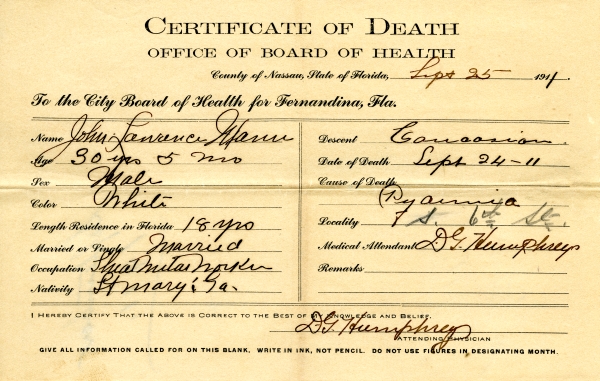 CERTIFICATE OF DEATH
OFFICE OF BOARD OF HEALTH
County of Nassau, State of Florida, Sept 25 1911.
To the City Board of Health for Fernandina, Fla.
Name John Lawrence Mann
Age 30 yrs 5 mo
Sex Male
Color White
Length Residence in Florida 18 yrs
Married or Single Married
Occupation Sheet Metal Worker
Nativity St Mary's Ga.
Descent Caucasian.
Date of Death Sept 24-11
Cause of Death
Pyaemia
Locality 7 S. 6th St.
Medical Attendant D G Humphreys
Remarks
I HEREBY CERTIFY THAT THE ABOVE IS CORRECT TO THE BEST OF MY KNOWLEDGE AND BELIEF.
D G Humphreys
ATTENDING PHYSICIAN
GIVE ALL INFORMATION CALLED FOR ON THIS BLANK, WRITE IN INK, NOT PENCIL. DO NOT USE FIGURES IN DESIGNATING MONTH.